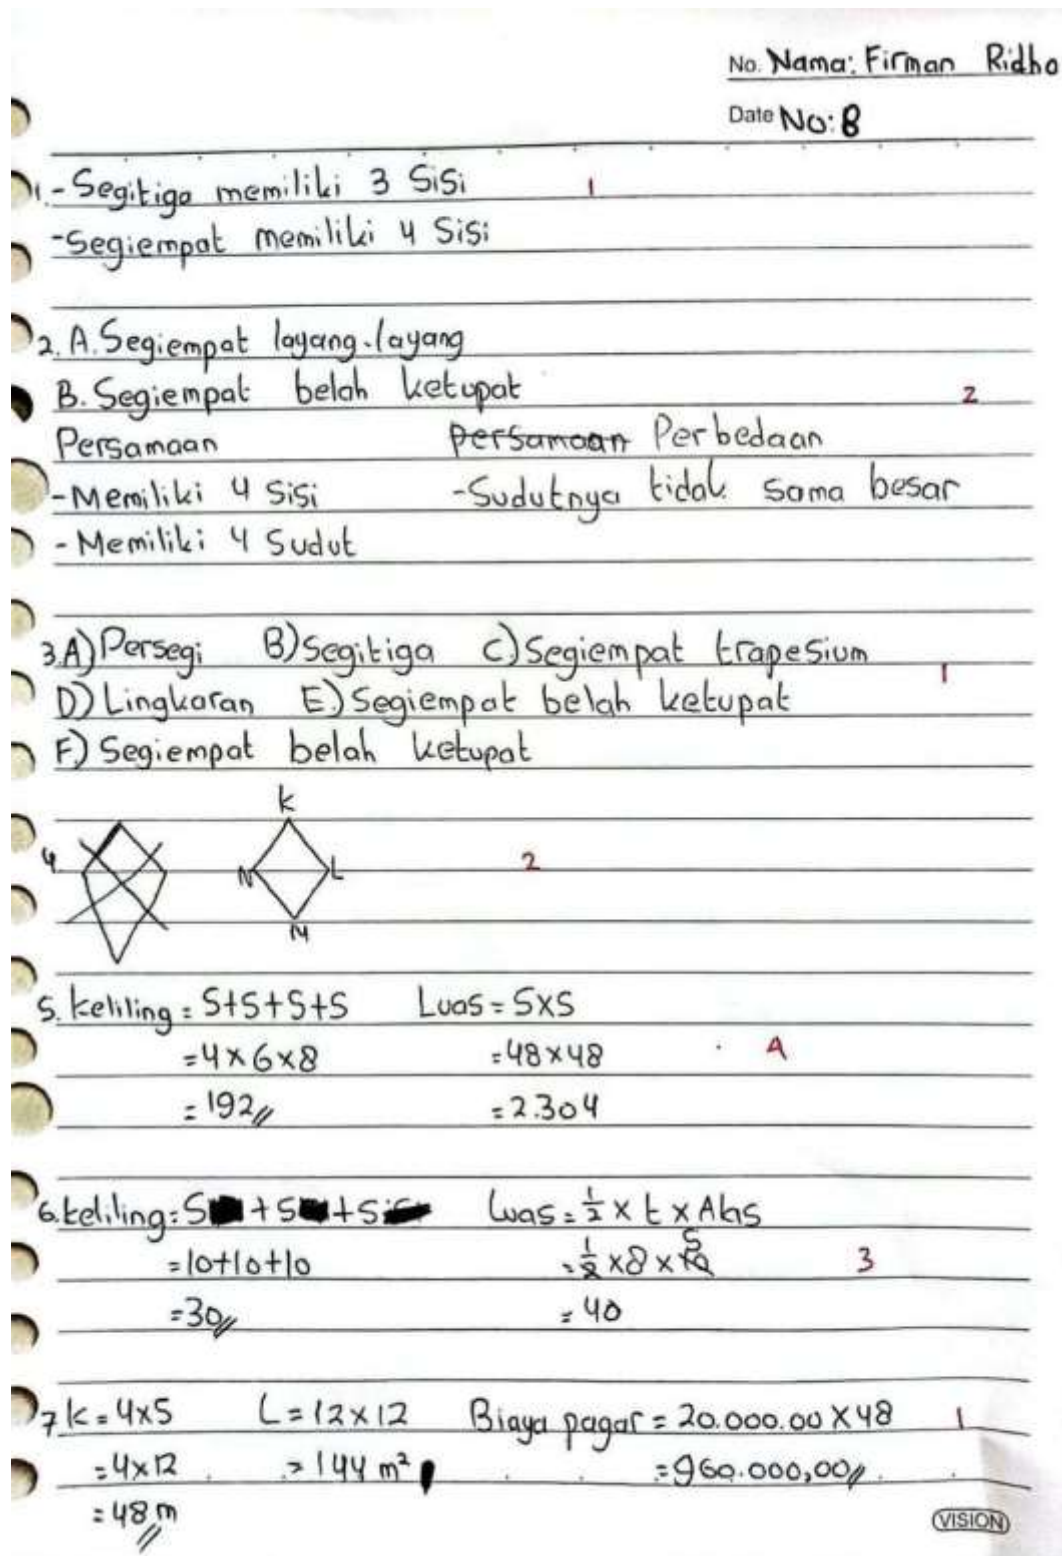 No. Nama: Firman Ridho
Date No: 8
1. - Segitiga memiliki 3 Sisi 1
- Segiempat memiliki 4 Sisi
2. A. Segiempat layang-layang
B. Segiempat belah ketupat 2
Persamaan Persamaan Perbedaan
- Memiliki 4 Sisi - Sudutnya tidak sama besar
- Memiliki 4 Sudut
3. A) Persegi B) Segitiga C) Segiempat trapesium 1
D) Lingkaran E.) Segiempat belah ketupat
F) Segiempat belah ketupat
K
4. N L 2
M
5. keliling = S+S+S+S Luas = S×S
= 4×6×8 = 48×48 A
= 192 // = 2.304
6. keliling = S + S + Si Luas = 1/2 × t × Alas
= 10+10+10 = 1/2 × 8 × 10 5 3
= 30 // = 40
7 K = 4×S L = 12×12 Biaya pagar = 20.000.00 × 48 1
= 4×12 = 144 m² = 960.000,00 //
= 48 m //
VISION